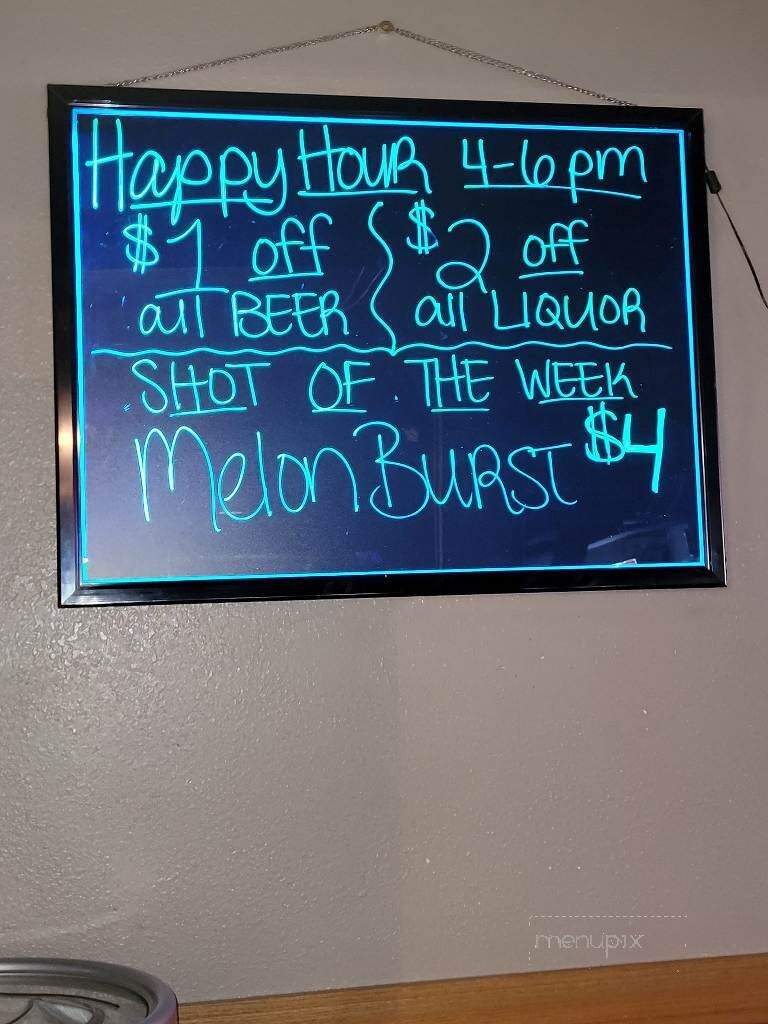 Happy Hour 4-6pm
$1 off $2 off
all BEER all LIQUOR
SHOT OF THE WEEK
Melon BURST $4
menupix